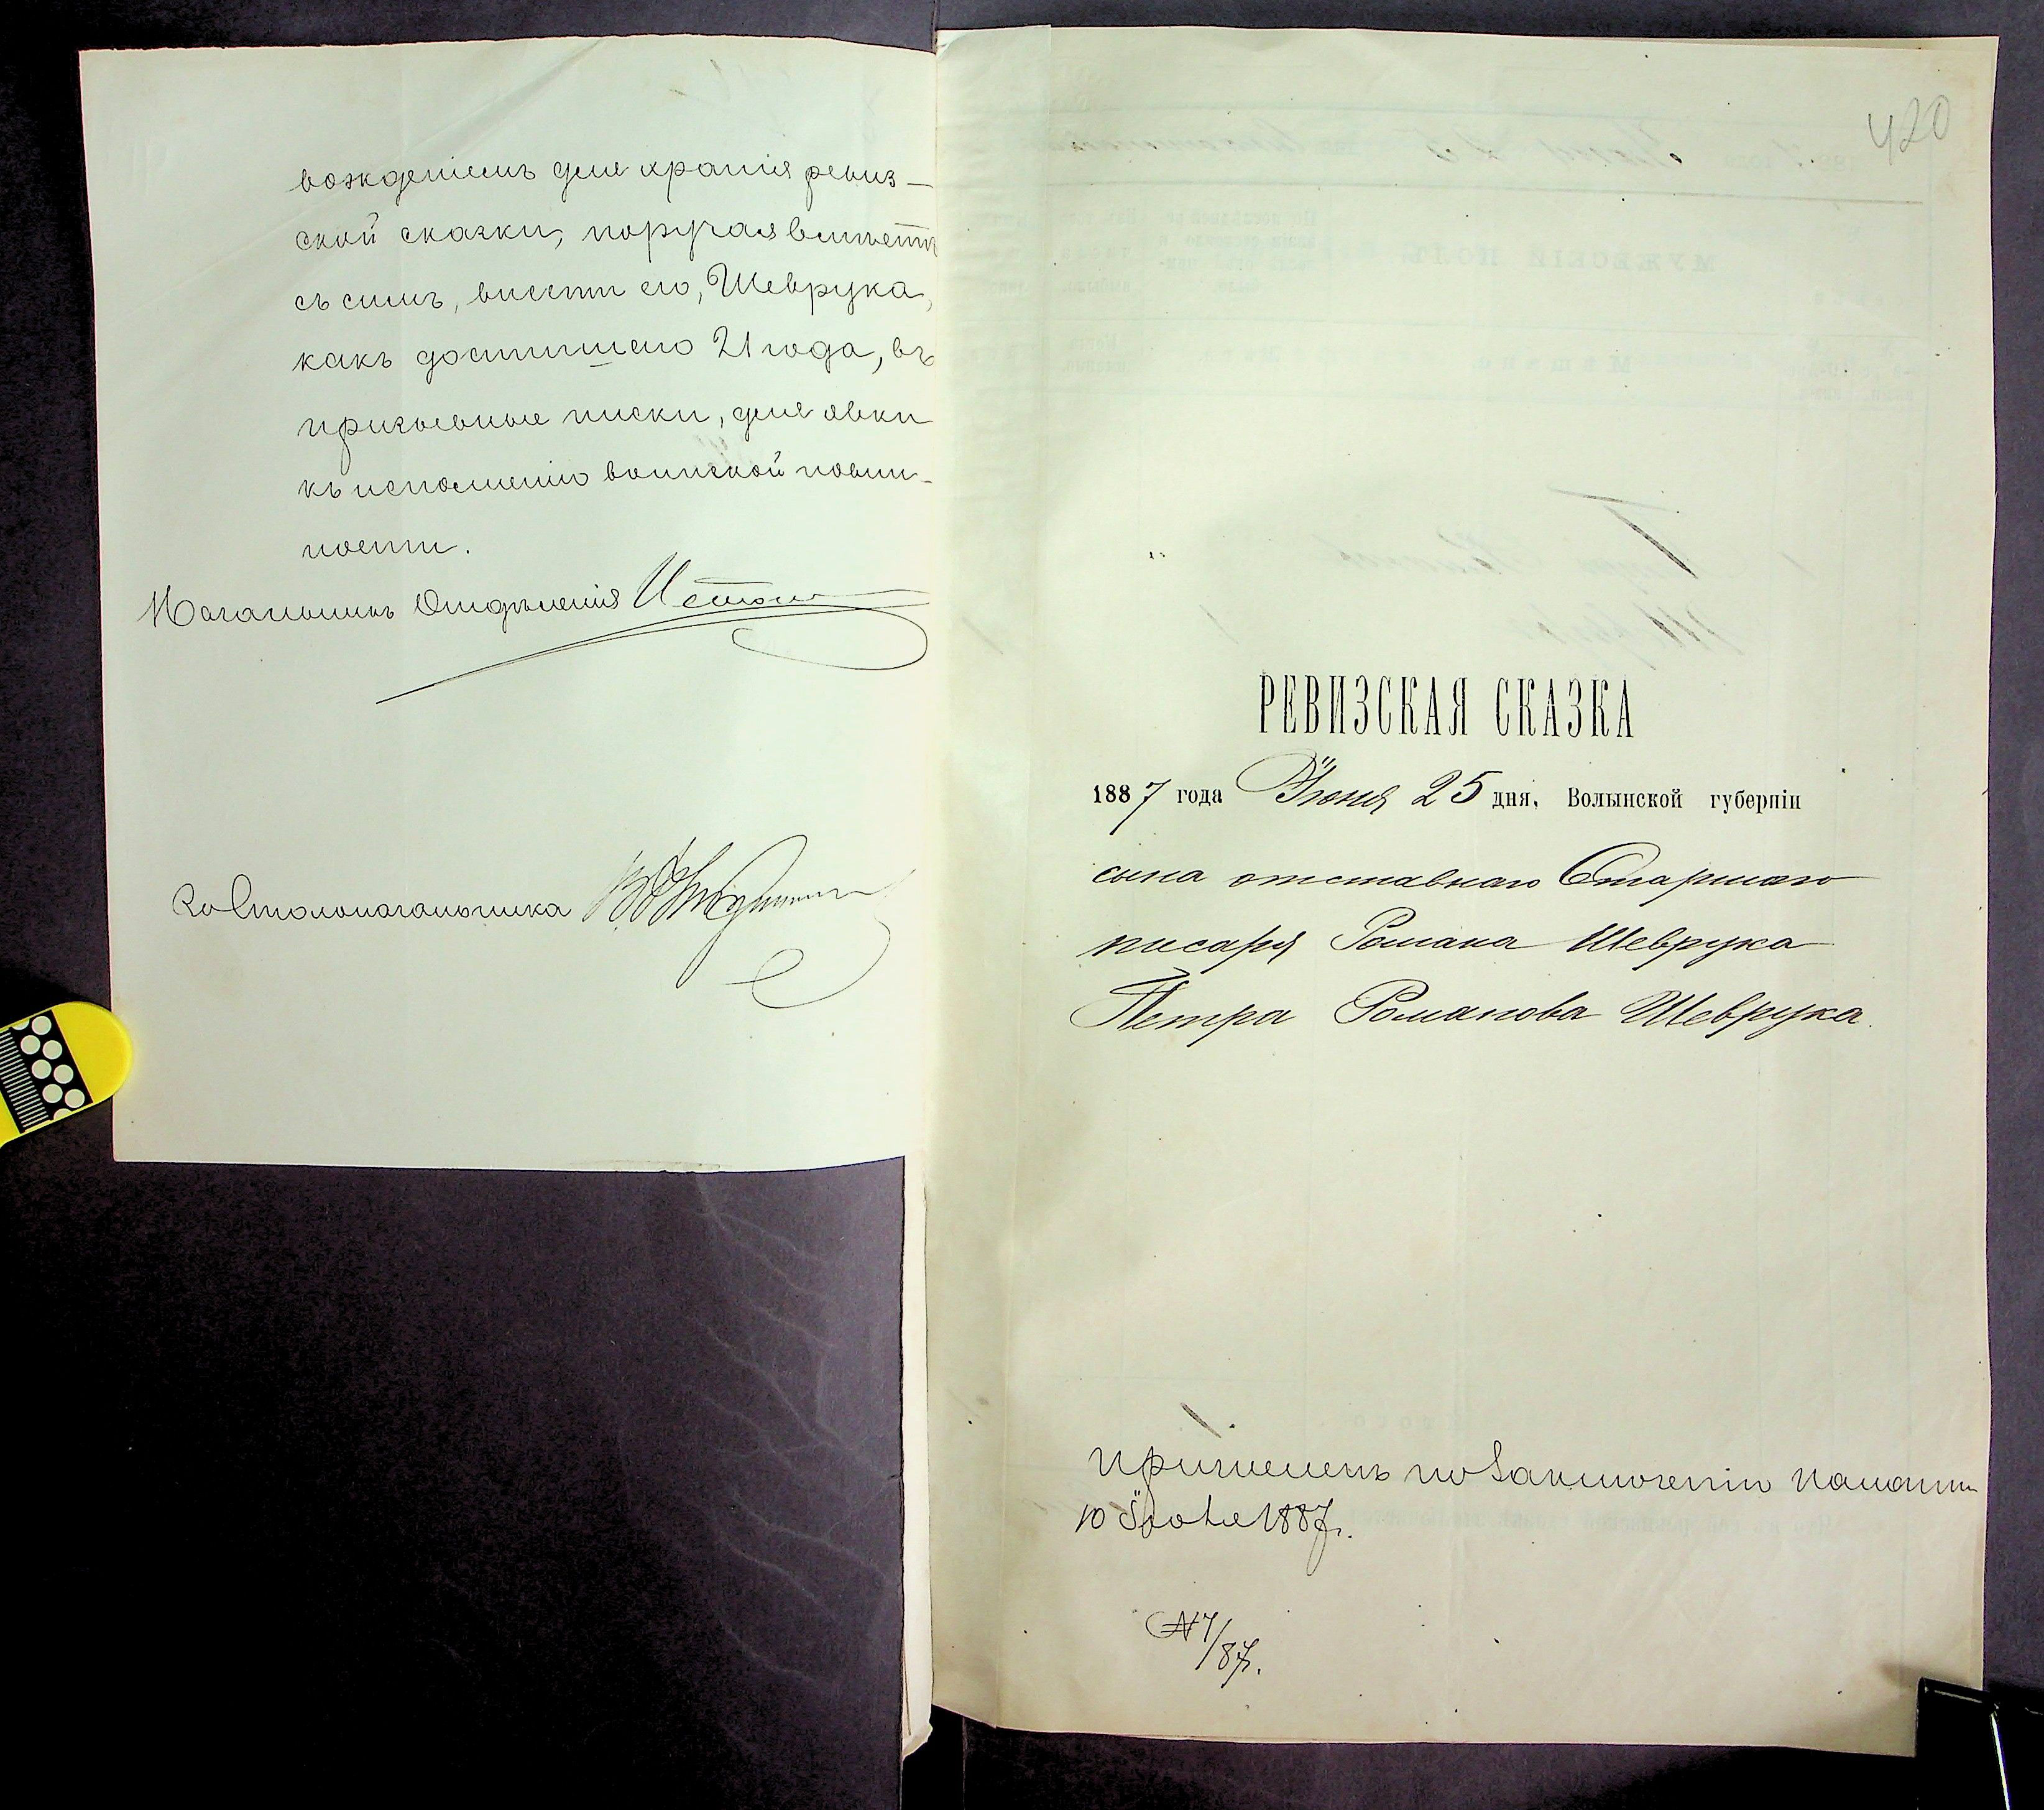 вожденіемъ для хранія ревиз-
ской сказки, поручая вмѣстѣ
съ симъ, внести его, Шеврука,
какъ достигшаго 21 года, въ
призывные списки, для явки
къ исполненію воинской повин-
ности.
Начальникъ Отдѣленія
За Столоначальника
420
РЕВИЗСКАЯ СКАЗКА
1887 года Іюня 25 дня, Волынской губерніи
сына отставнаго Старшаго
писаря Романа Шеврука
Петра Романова Шеврука.
по заключенію палаты
10 1887 г.
№ 7/87.